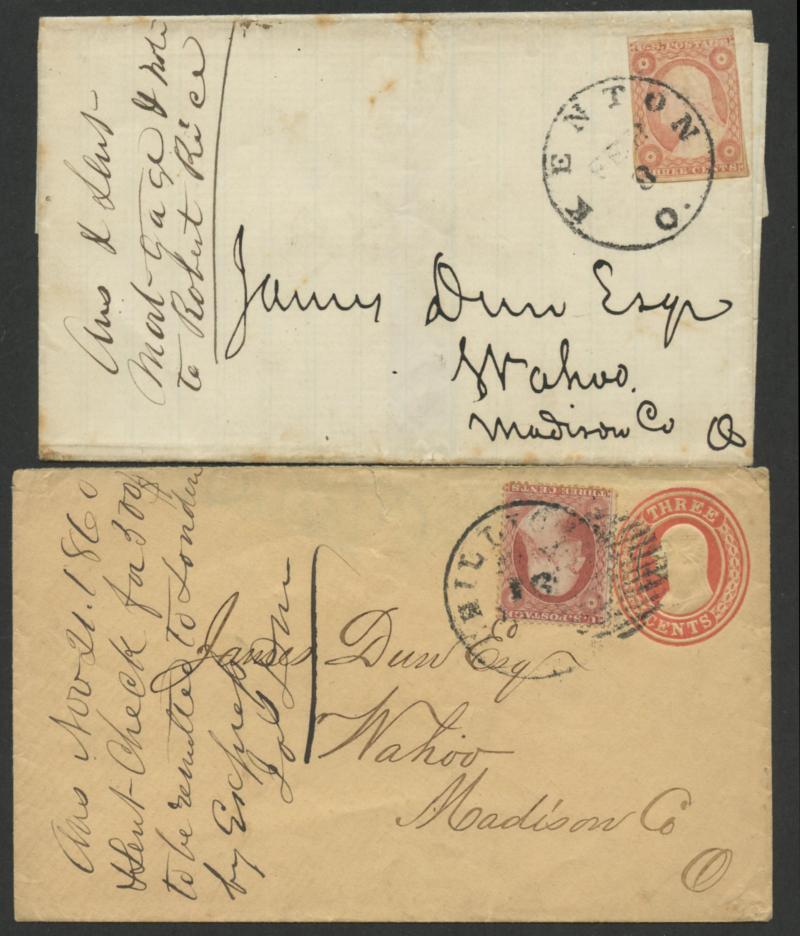 Ans & Sent
Mortgage & note
to Robert Rice
U.S. POSTAGE
THREE CENTS
KENTON O.
8
James Dun Esqr
Wahoo.
Madison Co O
Ans Nov 21. 1860
& Sent Check for 300$
to be remitted to London
by Express
THREE CENTS
U.S. POSTAGE
16
THREE
CENTS
James Dun Esq
Wahoo
Madison Co
O